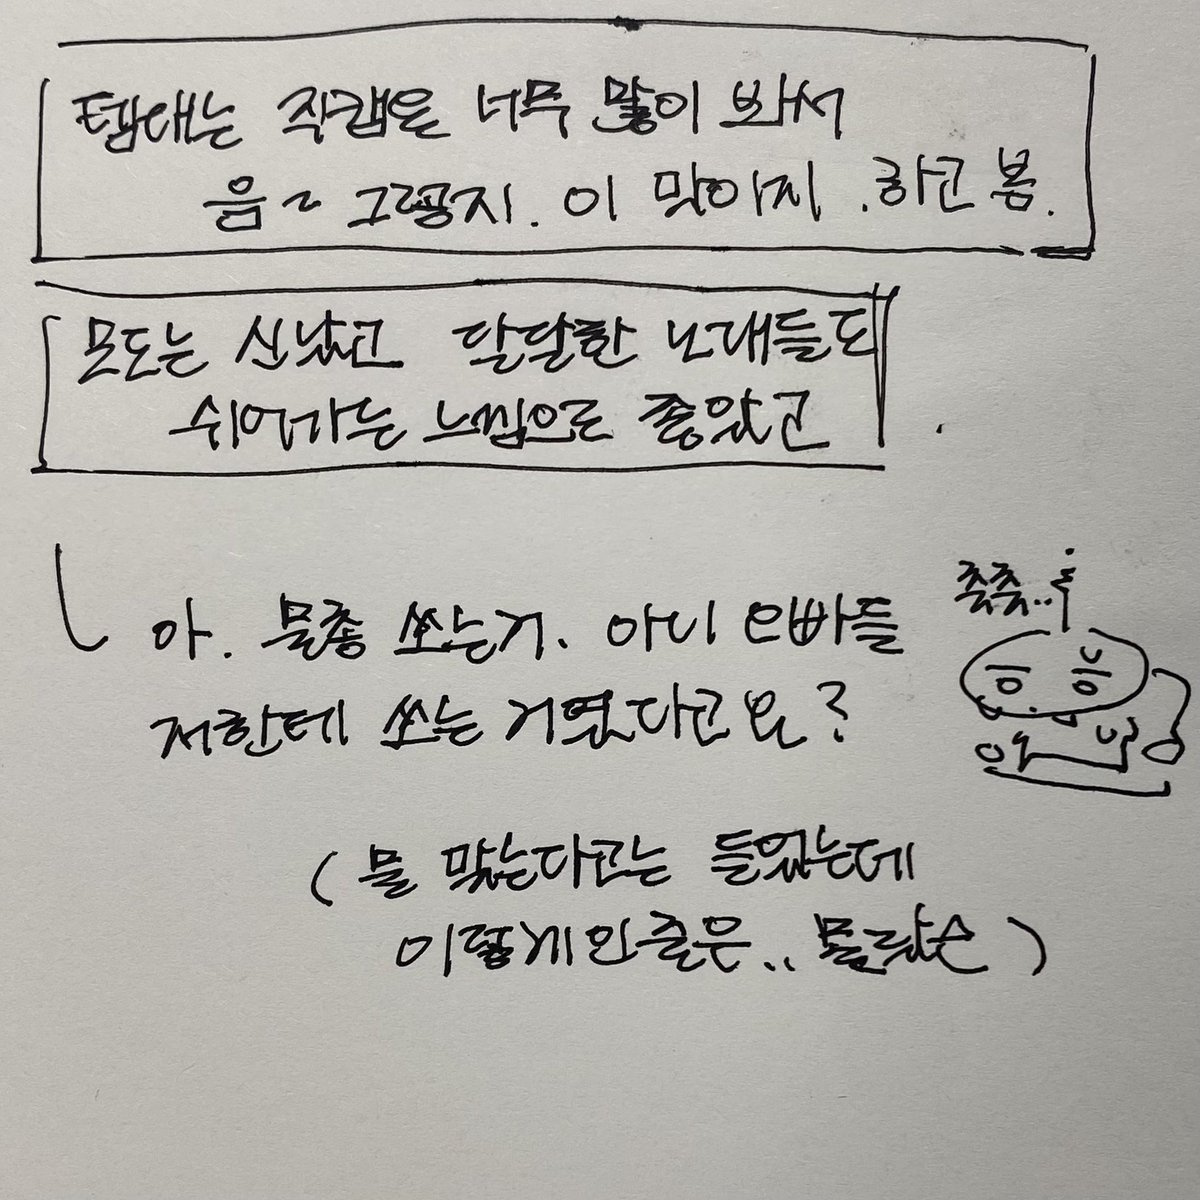 텝대는 직캠을 너무 많이 봐서
음~ 그렇지. 이 맛이지. 하고 봄.
모도는 신났고 달달한 노래들도
쉬어가는 느낌으로 좋았고
아. 물총 쏘는거. 아니 오빠들
저한테 쏘는 거였다고요?
축축..
(물 맞는다고는 들었는데
이렇게인 줄은.. 몰랐슨)